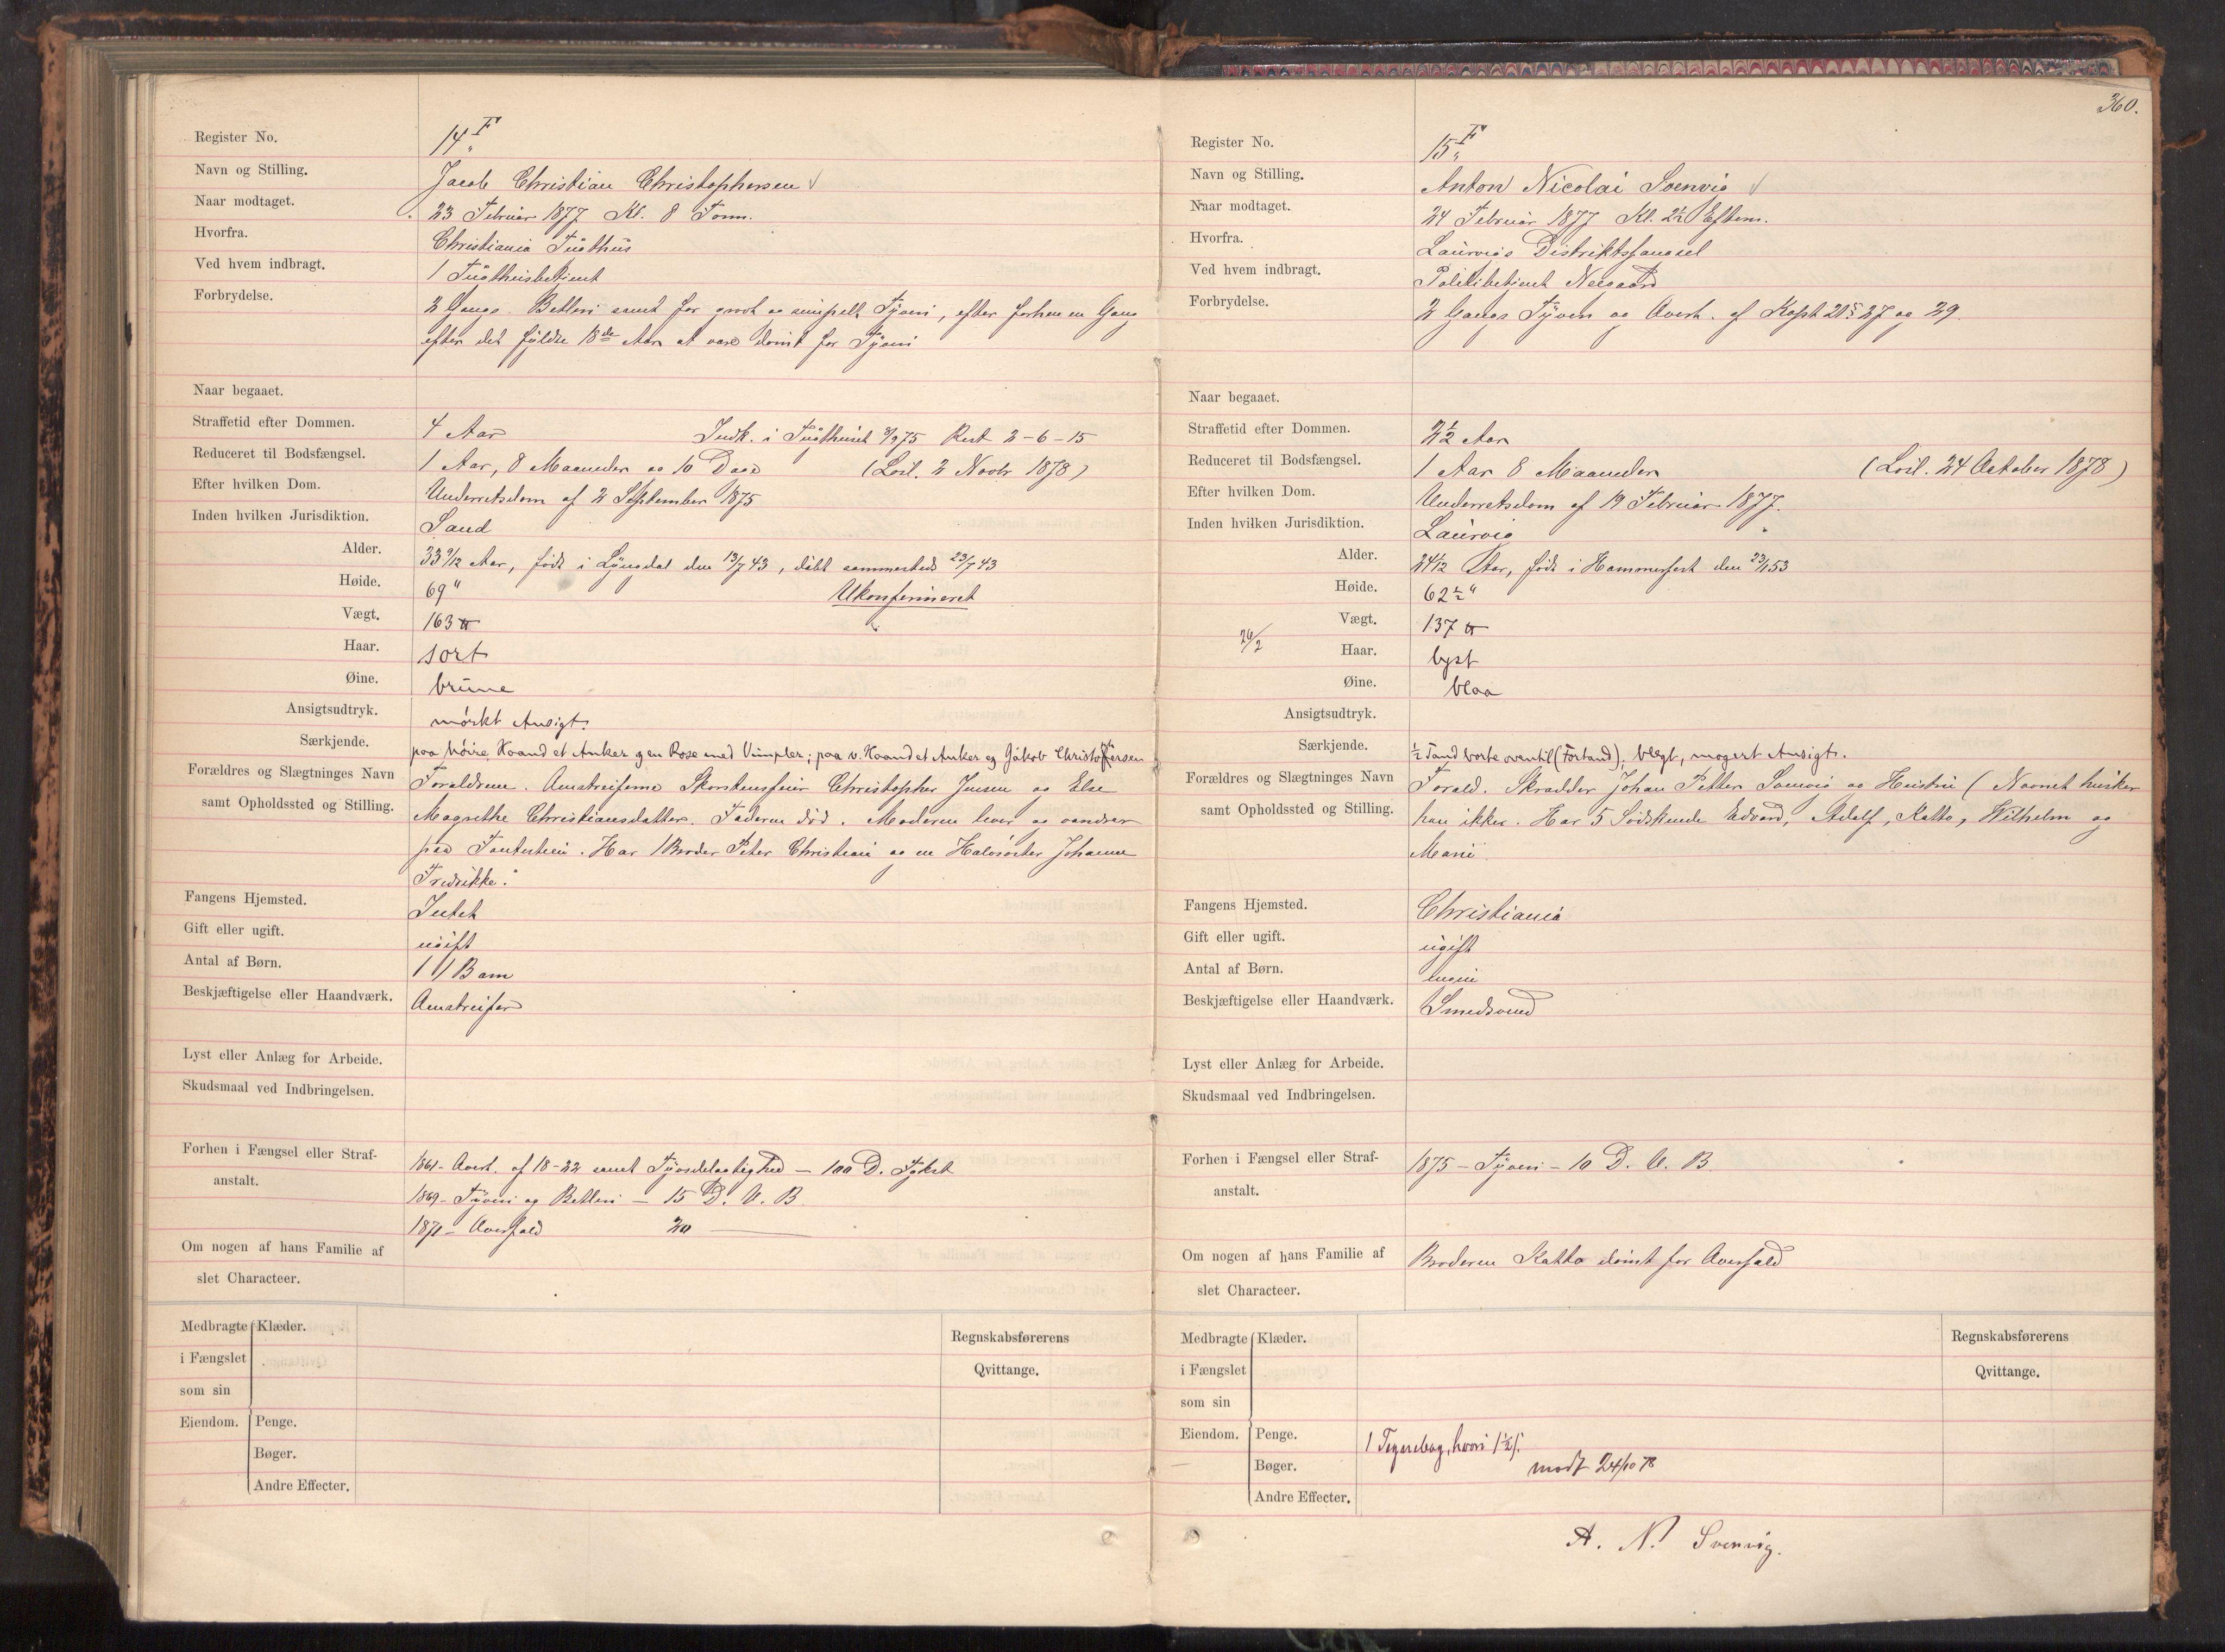 Register No. 14 F
Navn og Stilling. Jacob Christian Christophersen
Naar modtaget. 23 Februar 1877 Kl. 8 Form.
Hvorfra. Christiania Tugthus
Ved hvem indbragt. 1 Tugthusbetjent
Forbrydelse. 2 Gangs Betleri samt for grovt og simpelt Tyveri, efter forhen en Gang
efter det fyldte 18de Aar at være dømt for Tyveri
Naar begaaet.
Straffetid efter Dommen. 4 Aar Indk. i Tugthuset 3/9 75 Rest 2-6-15
Reduceret til Bodsfængsel. 1 Aar, 8 Maaneder og 10 Dage (Løsl. 2 Novbr 1878)
Efter hvilken Dom. Underretsdom af 2 September 1875
Inden hvilken Jurisdiktion. Sand
Alder. 33 9/12 Aar, født i Lyngdal den 13/7 43, døbt sammesteds 23/7 43
Høide. 69" Ukonfirmeret
Vægt. 163 ℔
Haar. sort
Øine. brune
Ansigtsudtryk. mørkt Ansigt.
Særkjende. paa høire Haand et Anker og en Rose med Vimpler; paa v. Haand et Anker og Jakob Christofersen
Forældres og Slægtninges Navn Forældrene. Omstreiferne Skorstensfeier Christopher Jensen og Else
samt Opholdssted og Stilling. Magrethe Christiansdatter. Faderen død. Moderen lever og vandrer
paa Fantestien. Har 1 Broder Peter Christian og en Halvsøster Johanne
Fredrikke.
Fangens Hjemsted. Intet
Gift eller ugift. ugift
Antal af Børn. 1 / Barn
Beskjæftigelse eller Haandværk. Omstreifer
Lyst eller Anlæg for Arbeide.
Skudsmaal ved Indbringelsen.
Forhen i Fængsel eller Straf- Overt. af 18-22 samt Tyvsdelagtighed
anstalt. 1869 - Tyveri og Betleri - 15 D. V. B.
Overfald 20 —
Om nogen af hans Familie af
slet Characteer.
Medbragte Klæder. Regnskabsførerens
i Fængslet Qvittange.
som sin
Eiendom. Penge.
Bøger.
Andre Effecter.
360.
Register No. 15 F
Navn og Stilling. Anton Nicolai Svenvig
Naar modtaget. 24 Februar 1877 Kl. 2½ Efterm.
Hvorfra. Laurvigs Distriktsfængsel
Ved hvem indbragt. Politibetjent Neegaard
Forbrydelse. 2 Gangs Tyveri og Overt. af Kapt 21 § 27 og 29.
Naar begaaet.
Straffetid efter Dommen. 2½ Aar
Reduceret til Bodsfængsel. 1 Aar 8 Maaneder (Løsl. 24 October 1878)
Efter hvilken Dom. Underretsdom af 19 Februar 1877.
Inden hvilken Jurisdiktion. Laurvig
Alder. 24 1/12 Aar, født i Hammerfest den 23/1 53
Høide. 62½"
Vægt. 137 ℔
26/2
Haar. lyst
Øine. blaa
Ansigtsudtryk.
Særkjende. ½ Tand borte oventil (Fortand), blegt, magert Ansigt.
Forældres og Slægtninges Navn Foræld. Skrædder Johan Petter Svenvig og Hustru (Navnet husker
samt Opholdssted og Stilling. han ikke. Har 5 Sødskende Edvard, Adolf, Katto, Wilhelm og
Marie
Fangens Hjemsted. Christiania
Gift eller ugift. ugift
Antal af Børn. ingen
Beskjæftigelse eller Haandværk. Smedsvend
Lyst eller Anlæg for Arbeide.
Skudsmaal ved Indbringelsen.
Forhen i Fængsel eller Straf- 1875 - Tyveri - 10 D. V. B.
anstalt.
Om nogen af hans Familie af Broderen Katto dømt for Overfald
slet Characteer.
Medbragte Klæder. Regnskabsførerens
i Fængslet Qvittange.
som sin
Eiendom. Penge. 1 Tegnebog, hvori 1½
Bøger. modt 24/10 78
Andre Effecter.
A. N. Svenvig.